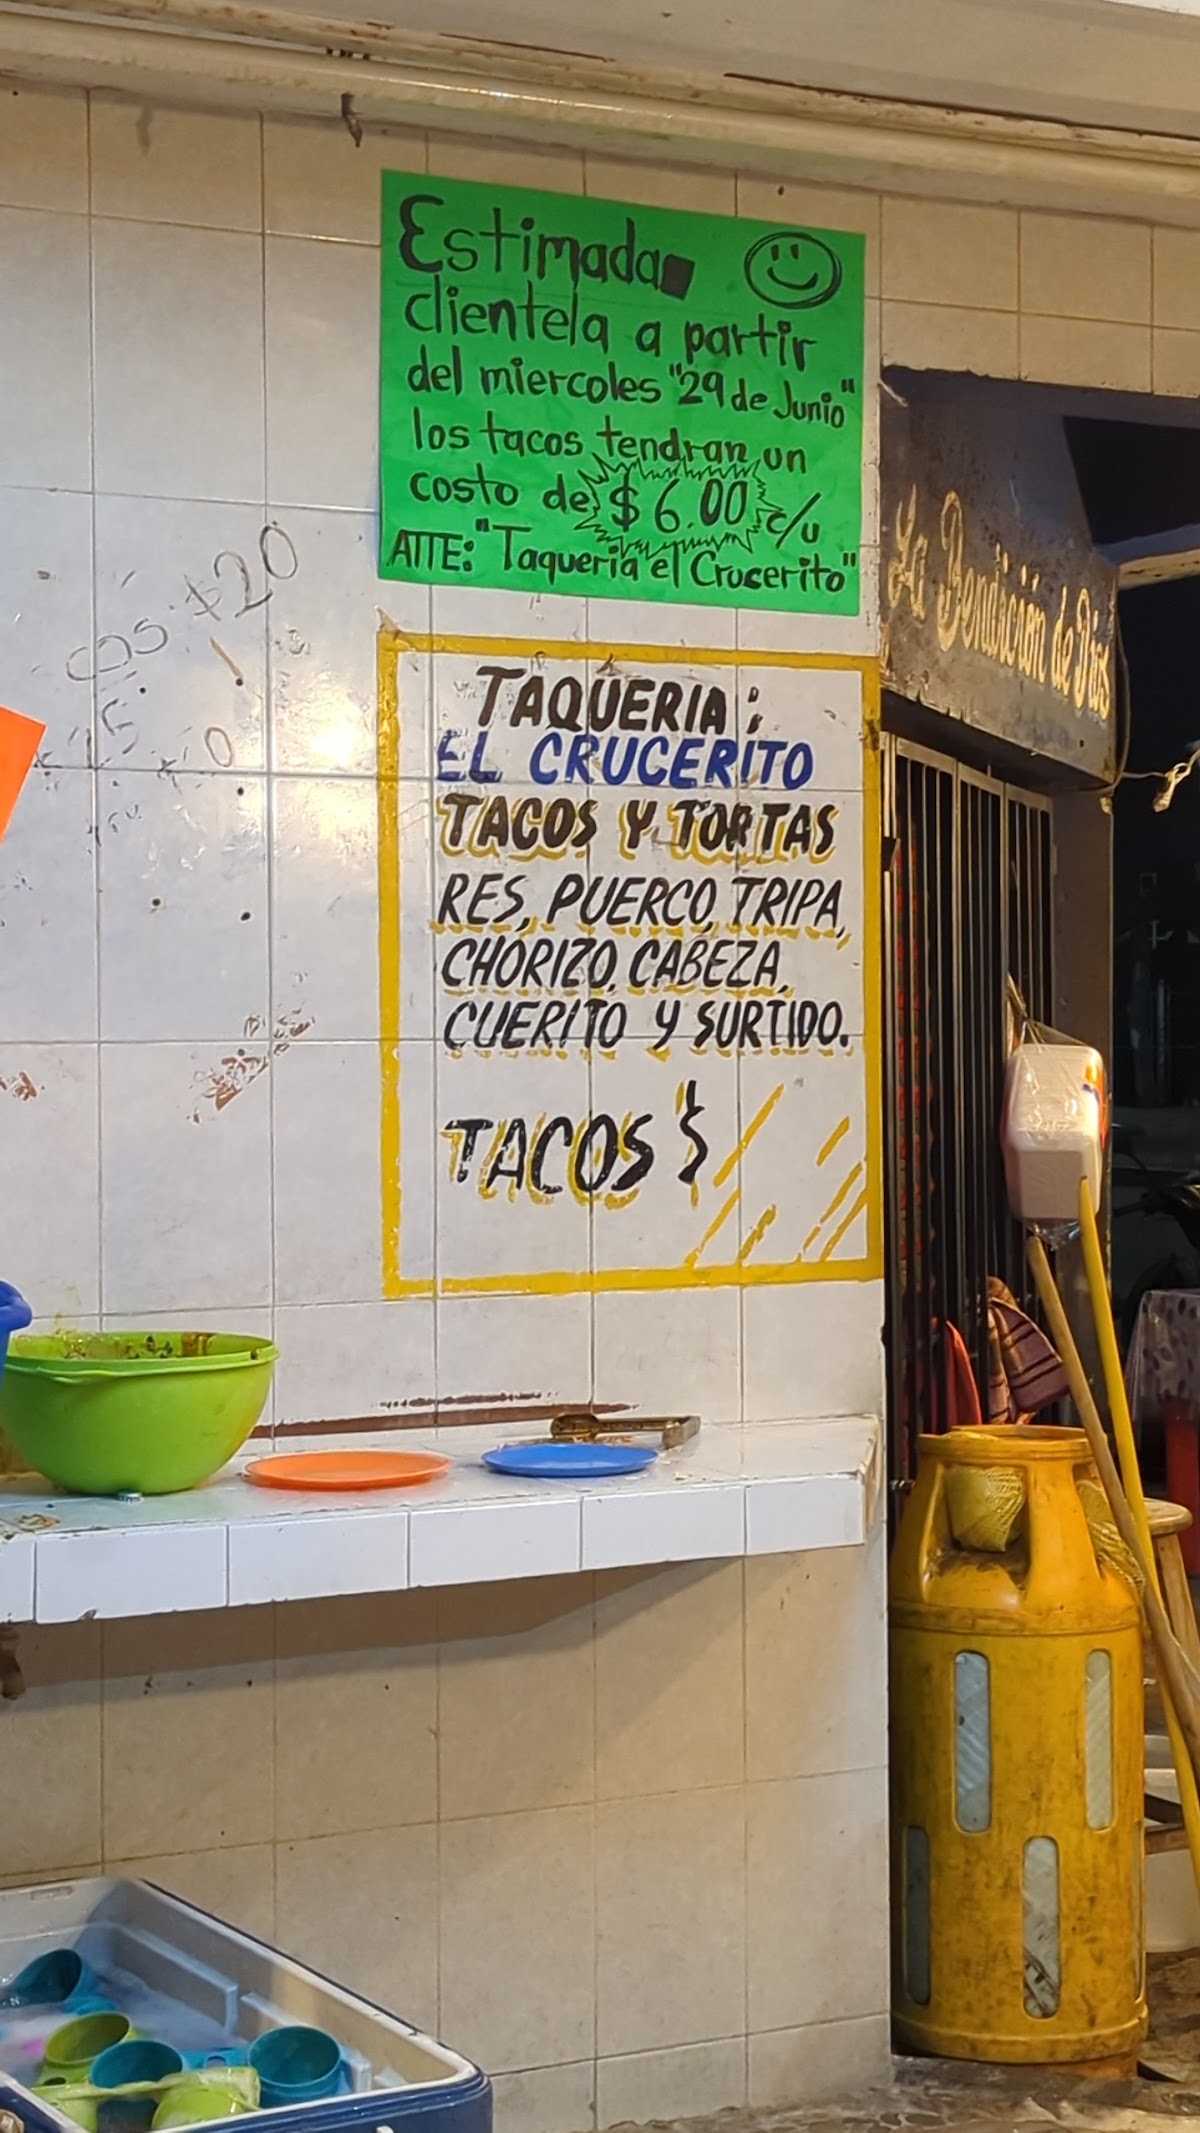 Estimada
clientela a partir
del miercoles "29 de Junio"
los tacos tendran un
costo de $ 6.00 c/u
ATTE: "Taqueria el Crucerito"
La Bendición de Dios
TAQUERIA:
EL CRUCERITO
TACOS Y TORTAS
RES, PUERCO, TRIPA,
CHORIZO, CABEZA,
CUERITO Y SURTIDO.
TACOS $